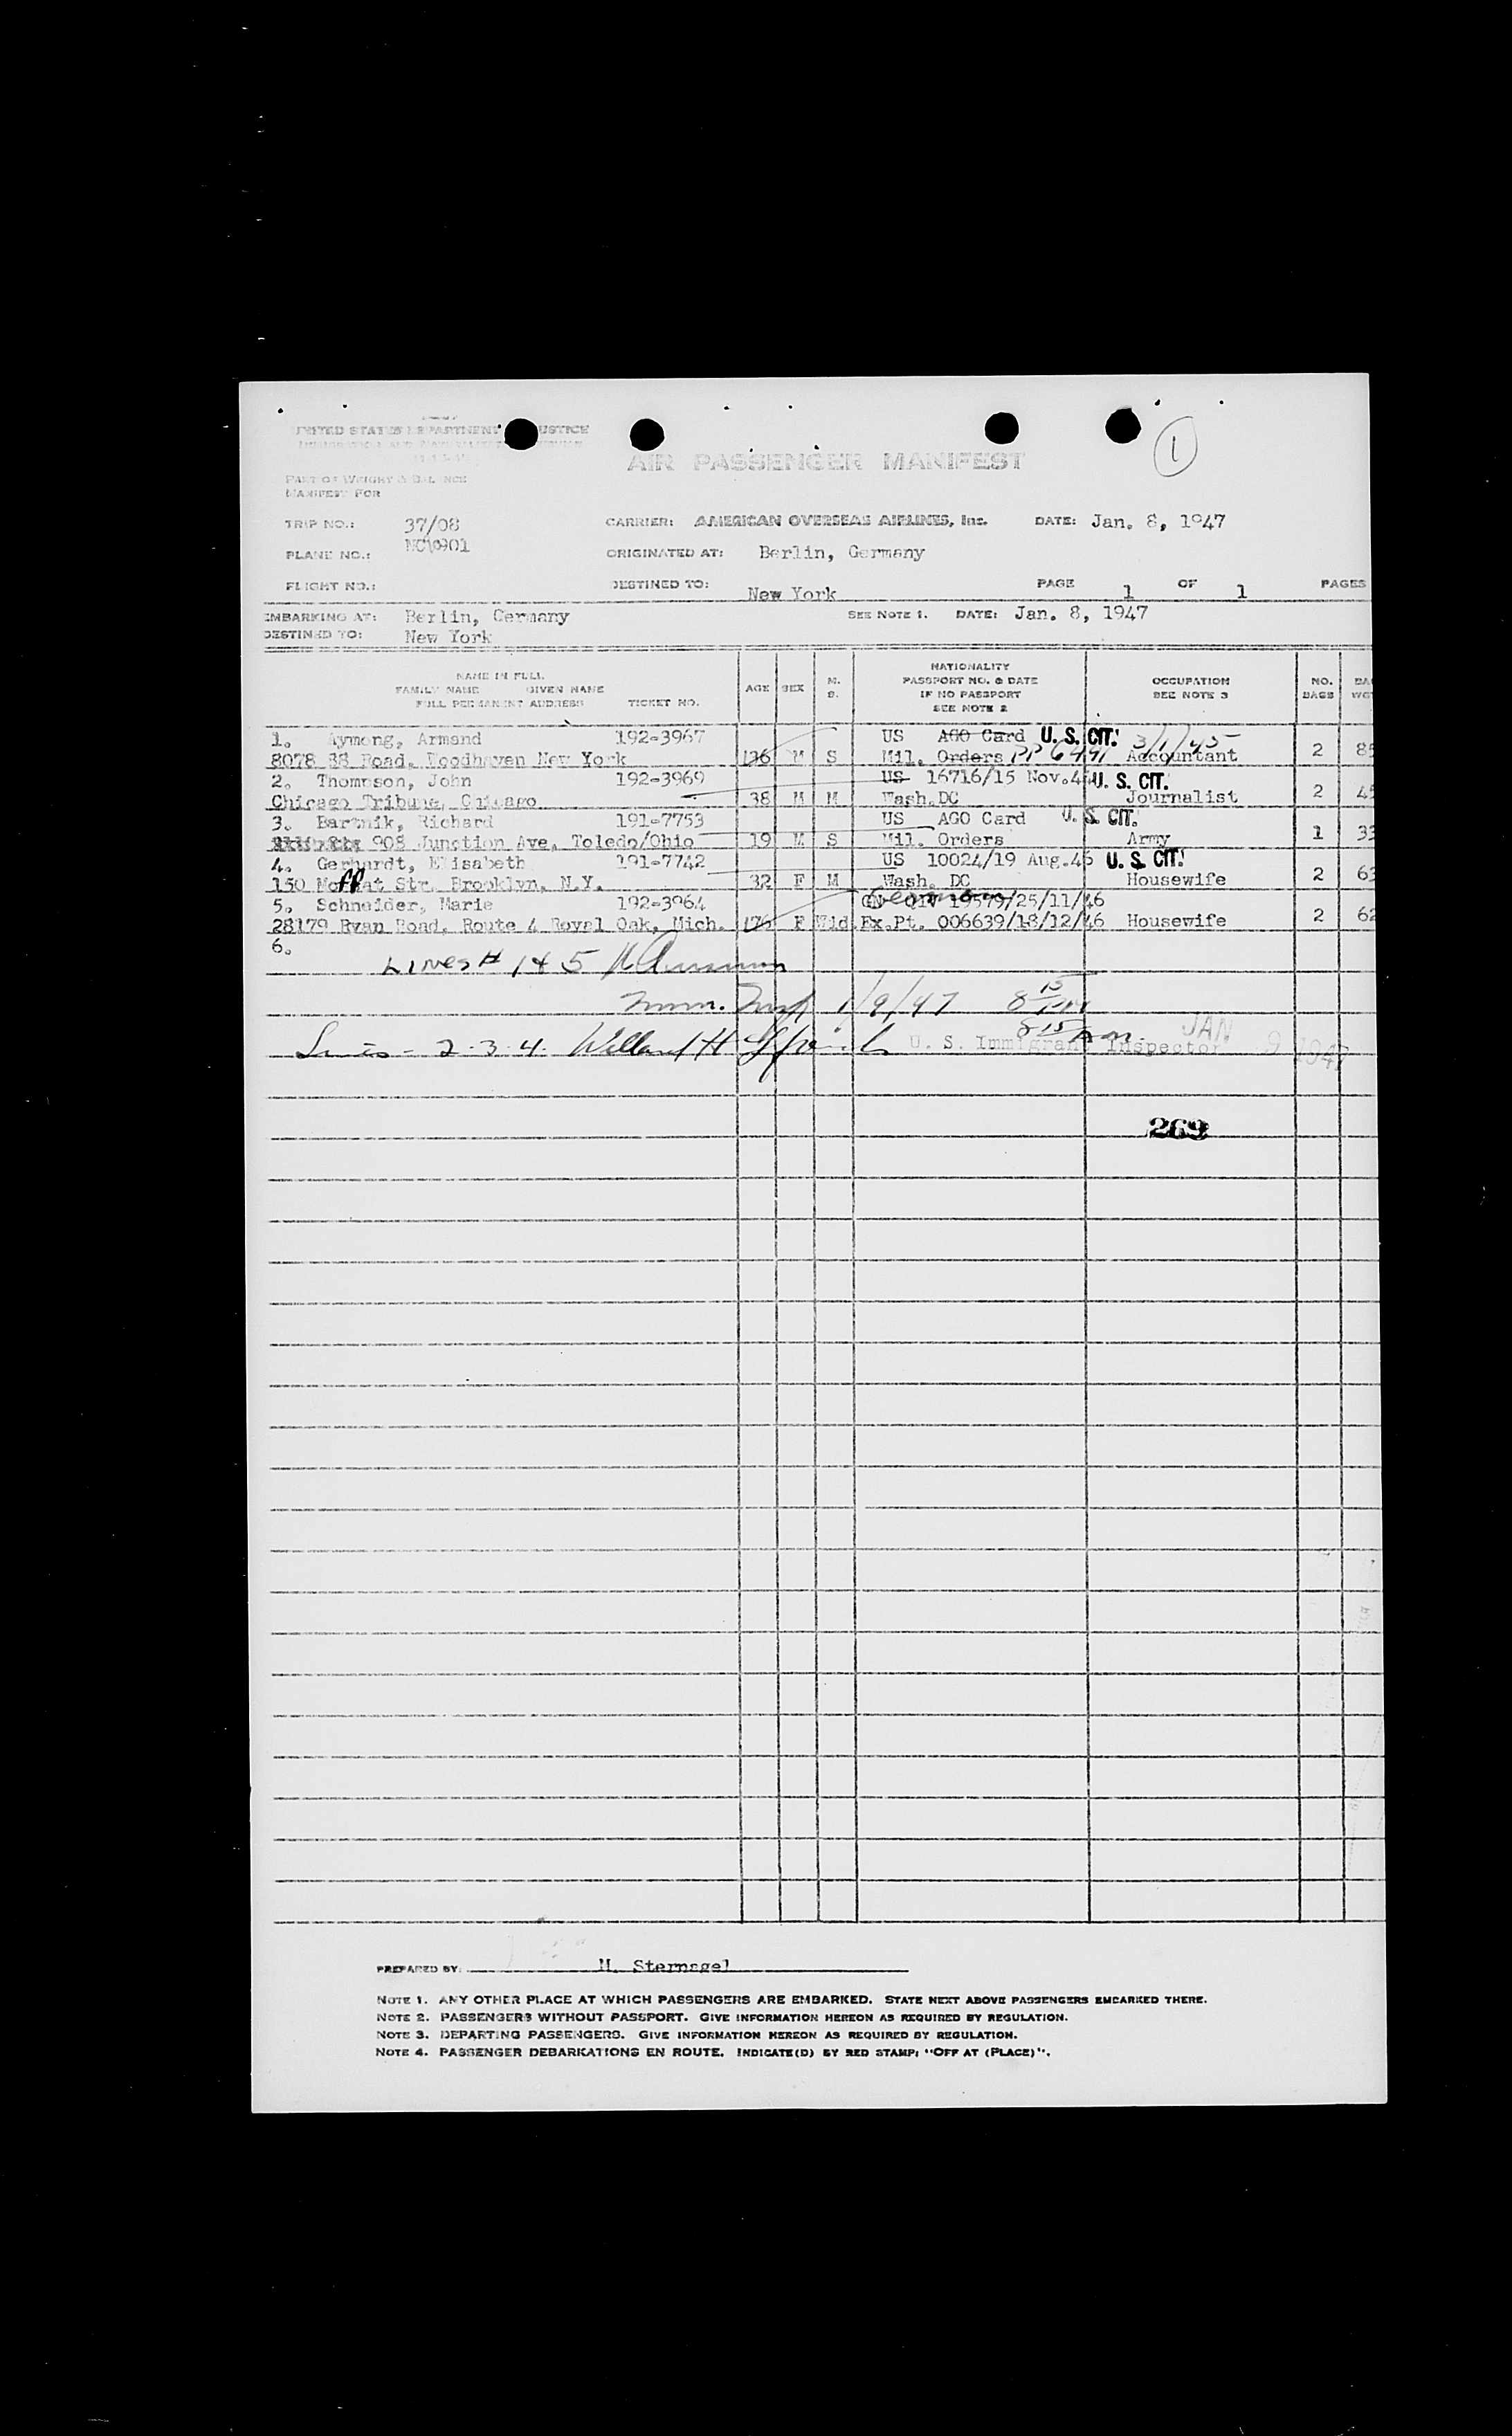 UNITED STATES DEPARTMENT JUSTICE
AIR PASSENGER MANIFEST
1
PART OF WEIGHT & BALANCE
MANIFEST FOR
TRIP NO.: 37/08 CARRIER: AMERICAN OVERSEAS AIRLINES, Inc. DATE: Jan. 8, 1947
PLANE NO.: ORIGINATED AT: Berlin, Germany
FLIGHT NO.: DESTINED TO: New York PAGE 1 OF 1 PAGES
EMBARKING AT: Berlin, Germany SEE NOTE 1. DATE: Jan. 8, 1947
DESTINED TO: New York
NAME IN FULL
FAMILY NAME GIVEN NAME
FULL PERMANENT ADDRESS TICKET NO.
AGE SEX M. S.
NATIONALITY
PASSPORT NO. & DATE
IF NO PASSPORT
SEE NOTE 2
OCCUPATION
SEE NOTE 3
NO. BAGS
1. Aymong, Armand 192-3967 US AGO Card U. S. CIT. 3/1/45
8078 88 Road, Woodhaven New York M S Mil. Orders PP Accountant 2 85
2. Thompson, John 192-3969 US 16716/15 Nov. U. S. CIT.
Chicago Tribune, Chicago 38 M M Wash.DC Journalist 2 45
3. Bartnik, Richard 191-7753 US AGO Card U. S. CIT.
908 Junction Ave, Toledo/Ohio 19 M S Mil. Orders Army 1 33
4. Gerhardt, Elisabeth 191-7742 US 10024/19 Aug.46 U. S. CIT.
150 Moffat Str. Brooklyn, N.Y. 32 F M Wash. DC Housewife 2 63
5. Schneider, Marie 192-3964 German QIV 19579/25/11/46
28179 Ryan Road, Route 4 Royal Oak, Mich. F Wid. Ex.Pt. 006639/18/12/46 Housewife 2 62
6.
Lines # 1 & 5
Imm. Insp 1/9/47 8 15
Lines - 2-3-4. Willard H 8 15 U. S. Immigrant Inspector JAN 9 1947
269
PREPARED BY: M. Sternagel
NOTE 1. ANY OTHER PLACE AT WHICH PASSENGERS ARE EMBARKED. STATE NEXT ABOVE PASSENGERS EMBARKED THERE.
NOTE 2. PASSENGERS WITHOUT PASSPORT. GIVE INFORMATION HEREON AS REQUIRED BY REGULATION.
NOTE 3. DEPARTING PASSENGERS. GIVE INFORMATION HEREON AS REQUIRED BY REGULATION.
NOTE 4. PASSENGER DEBARKATIONS EN ROUTE. INDICATE(D) BY RED STAMP: "OFF AT (PLACE)".